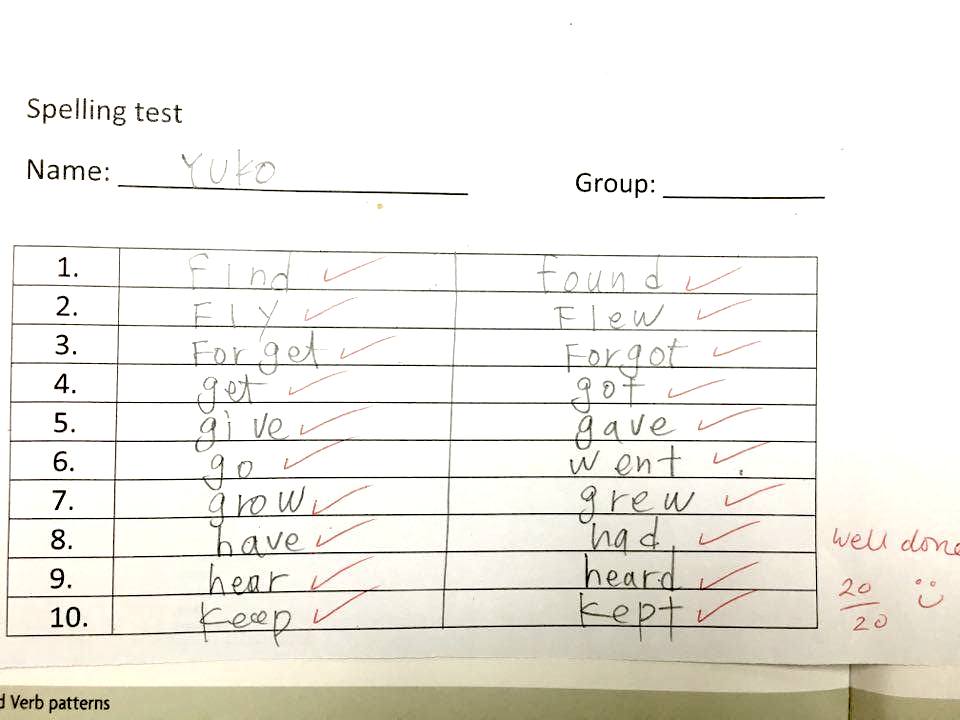 Spelling test
Name: Yuko Group:
1. Find found
2. Fly Flew
3. Forget Forgot
4. get got
5. give gave
6. go went
7. grow grew
8. have had
well done
9. hear heard
20
10. keep kept
20
d Verb patterns